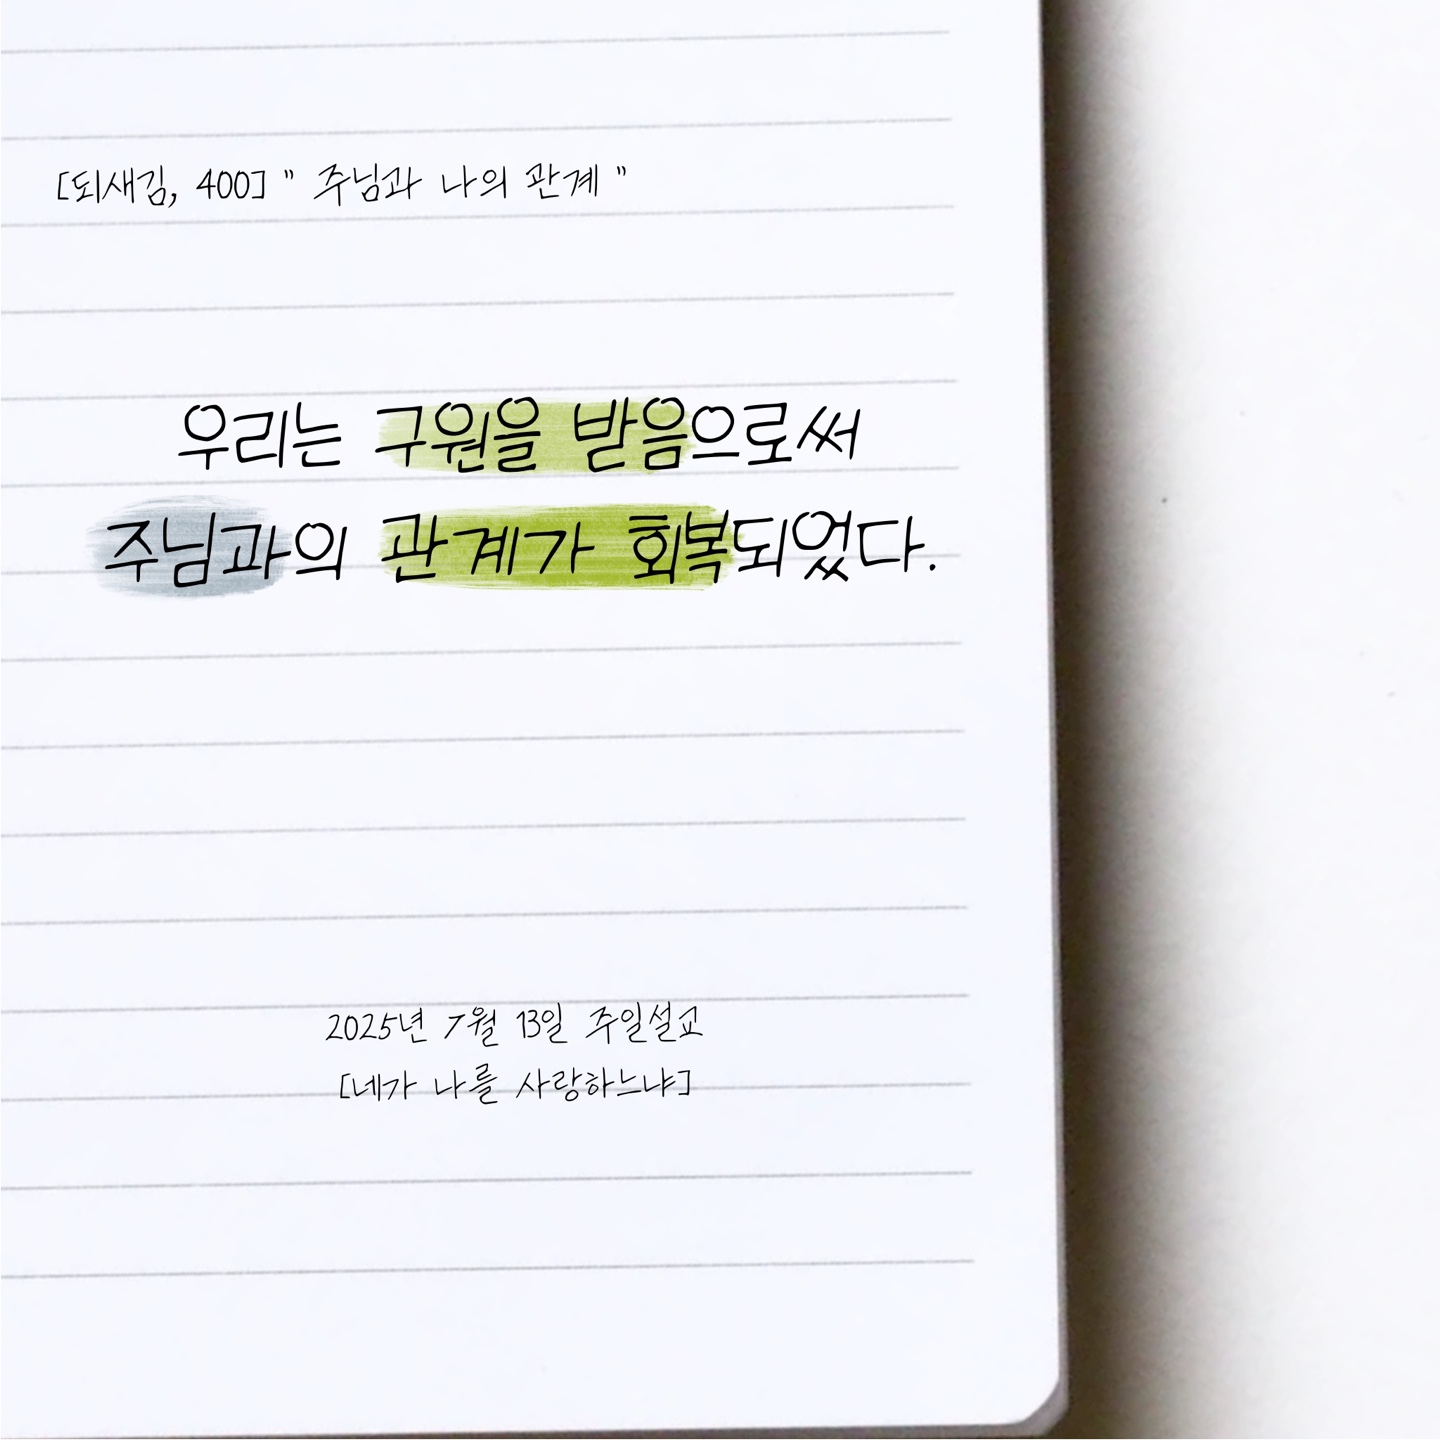 [되새김, 400] " 주님과 나의 관계 "
우리는 구원을 받음으로써
주님과의 관계가 회복되었다.
2025년 7월 13일 주일설교
[네가 나를 사랑하느냐]